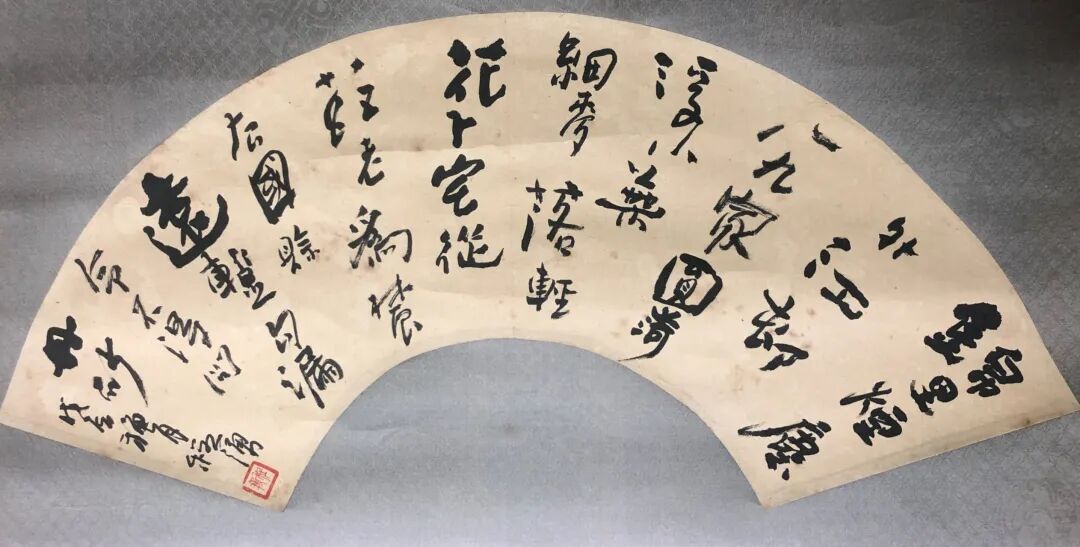 錦里煙塵
外江村
八九家圓荷
浮小葉
細麥落輕
花卜宅從
茲老為農
去國賒
遠慚句漏
令不得問
丹砂